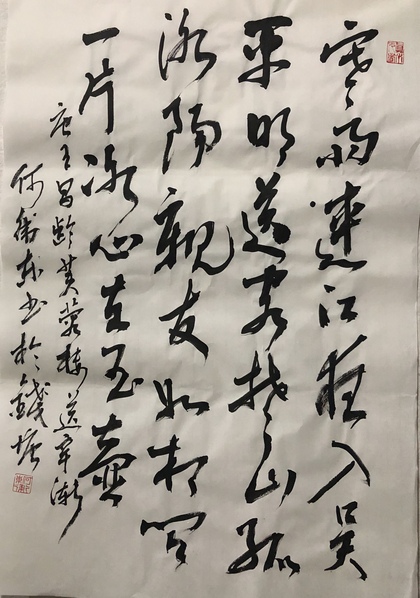 寒雨連江夜入吳
平明送客楚山孤
洛陽親友如相問
一片冰心在玉壺
唐王昌齡芙蓉樓送辛漸
何衛東书於錢塘